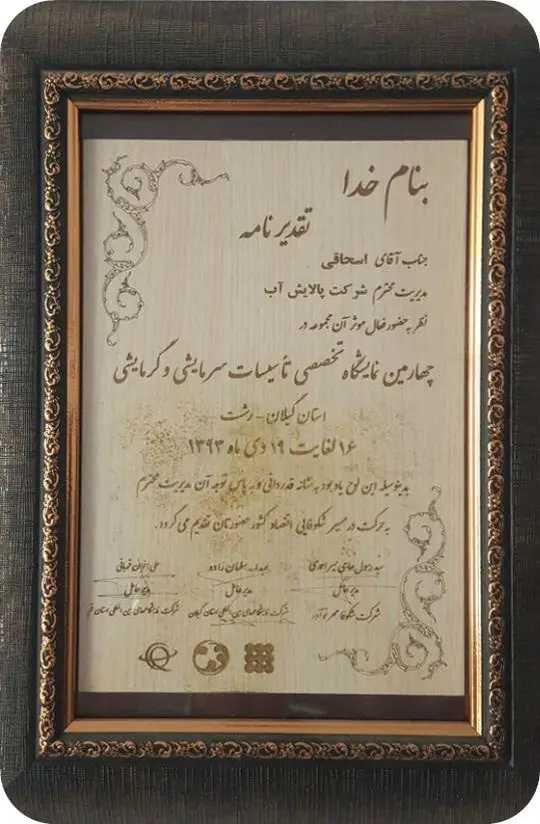 بنام خدا
تقدیر نامه
جناب آقای اسحاقی
مدیریت محترم شرکت پالایش آب
نظر به حضور فعال موثر آن مجموعه در
چهارمین نمایشگاه تخصصی تأسیسات سرمایشی و گرمایشی
استان گیلان - رشت
۱۶ لغایت ۱۹ دی ماه ۱۳۹۳
بدینوسیله این لوح یادبود به نشانه قدردانی و به پاس توجه آن مدیریت محترم
به حرکت در مسیر شکوفایی اقتصاد کشور حضورتان تقدیم می گردد.
سید رسول حاجی میر احمدی
سلمان زاده
علی
مدیر عامل
مدیر عامل
مدیر عامل
شرکت شکوفا مهر نوآور
شرکت نمایشگاههای بین المللی استان گیلان
شرکت نمایشگاههای بین المللی استان قم